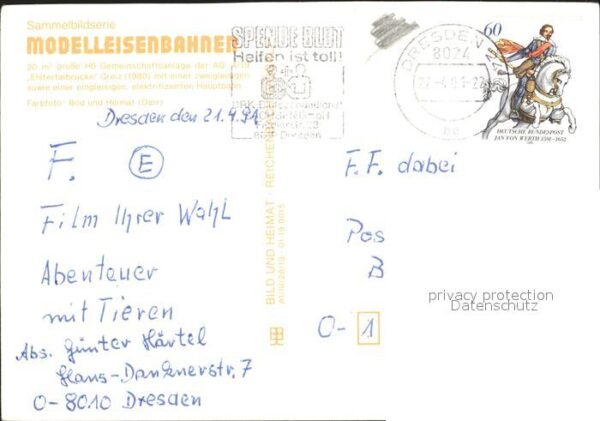 Sammelbildserie
MODELLEISENBAHNEN
20 m² große H0 Gemeinschaftsanlage der AG
"Elstertalbrücke" Greiz (1980) mit einer zweigleisigen
sowie einer eingleisigen, elektrifizierten Hauptbahn
Farbfoto: Bild und Heimat (Darr)
SPENDE BLUT
Helfen ist toll!
DRESDEN
8024
60
DEUTSCHE BUNDESPOST
JAN VON WERTH 1591-1652
Dresden den 21.4.91
F. E
Film Ihrer Wahl
Abenteuer
mit Tieren
Abs. Günter Härtel
Hans-Danknerstr. 7
O-8010 Dresden
BILD UND HEIMAT · REICHENBACH
F.F. dabei
Pos
B
O-1
privacy protection
Datenschutz